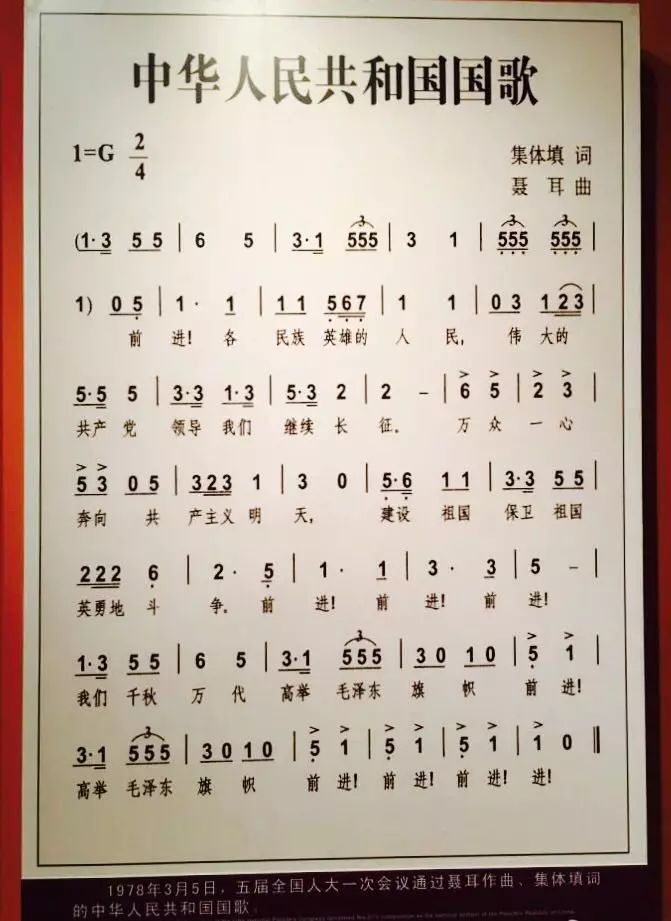 中华人民共和国国歌
1=G 2/4
集体填 词
聂 耳 曲
(1·3 5 5 | 6 5 | 3·1 555 | 3 1 | 555 555 |
1) 0 5 | 1· 1 | 1 1 567 | 1 1 | 0 3 123 |
前 进! 各 民族 英雄的 人 民, 伟 大的
5·5 5 | 3·3 1·3 | 5·3 2 | 2 – | 6 5 | 2 3 |
共产 党 领导 我们 继续 长 征。 万 众 一 心
5 3 0 5 | 323 1 | 3 0 | 5·6 1 1 | 3·3 5 5 |
奔向 共 产主义 明 天, 建设 祖国 保卫 祖国
222 6 | 2· 5 | 1· 1 | 3· 3 | 5 – |
英勇地 斗 争。 前 进! 前 进! 前 进!
1·3 5 5 | 6 5 | 3·1 555 | 3 0 1 0 | 5 1 |
我们 千秋 万 代 高举 毛泽东 旗 帜 前 进!
3·1 555 | 3 0 1 0 | 5 1 | 5 1 | 5 1 | 1 0 ‖
高举 毛泽东 旗 帜 前 进! 前 进! 前 进! 进!
1978年3月5日，五届全国人大一次会议通过聂耳作曲、集体填词
的中华人民共和国国歌。